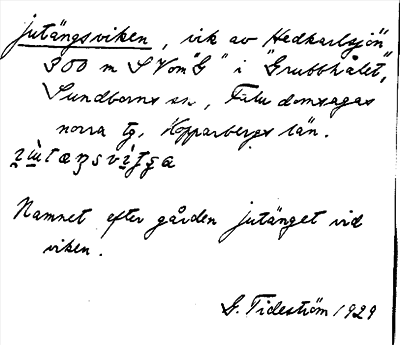 jutängsviken, vik av Hedkarlsjön,
300 m S Vom "G" i "Grubbhålet",
Sundborns sn, Falu domsagas
norra tg, Kopparbergs län.
Namnet efter gården jutänget vid
viken.
G. Tideström 1929